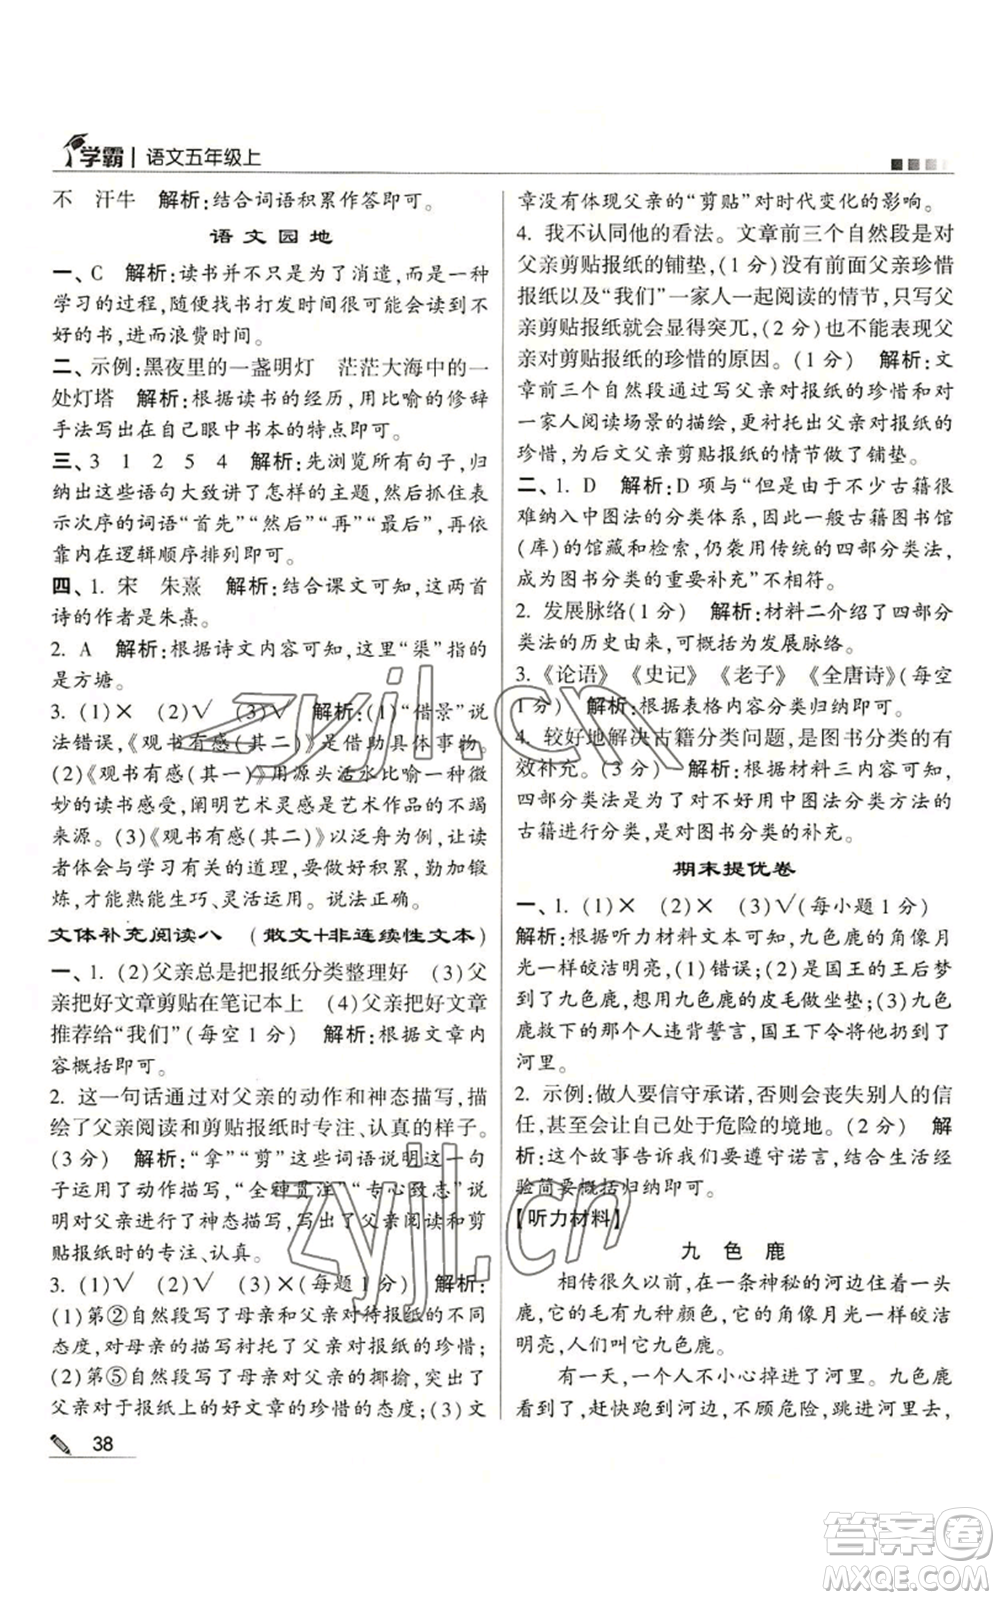 学霸 | 语文五年级上
不　汗牛　解析:结合词语积累作答即可。
语文园地
一、C　解析:读书并不只是为了消遣,而是一种
学习的过程,随意找书打发时间很可能会读到不
好的书,进而浪费时间。
二、示例:黑夜里的一盏明灯　茫茫大海中的一
处灯塔　解析:根据读书的经历,用比喻的修辞
手法写出在自己眼中书本的特点即可。
三、3　1　2　5　4　解析:先浏览所有句子,归
纳出这些语句大致讲了怎样的主题,然后抓住表
示次序的词语“首先”“然后”“再”“最后”,再依
靠内在逻辑顺序排列即可。
四、1. 宋　朱熹　解析:结合课文可知,这两首
诗的作者是朱熹。
2. A　解析:根据诗文内容可知,这里“渠”指的
是方塘。
3. (1)×　(2)√　(3)√　解析:(1)“借景”说
法错误,《观书有感(其二)》是借助具体事物。
(2)《观书有感(其一)》用源头活水比喻一种微
妙的读书感受,阐明艺术灵感是艺术作品的不竭
来源。(3)《观书有感(其二)》以泛舟为例,让读
者体会与学习有关的道理,要做好积累,勤加锻
炼,才能熟能生巧、灵活运用。说法正确。
文体补充阅读八　(散文+非连续性文本)
一、1. (2)父亲总是把报纸分类整理好　(3)父
亲把好文章剪贴在笔记本上　(4)父亲把好文章
推荐给“我们”(每空1分)　解析:根据文章内
容概括即可。
2. 这一句话通过对父亲的动作和神态描写,描
绘了父亲阅读和剪贴报纸时专注、认真的样子。
(3分)　解析:“拿”“剪”这些词语说明这一句
子运用了动作描写,“全神贯注”“专心致志”说
明对父亲进行了神态描写,写出了父亲阅读和剪
贴报纸时的专注、认真。
3. (1)√　(2)√　(3)×(每题1分)　解析:
(1)第②自然段写了母亲和父亲对待报纸的不同
态度,对母亲的描写衬托了父亲对报纸的珍惜;
(2)第⑤自然段写了母亲对父亲的揶揄,突出了
父亲对于报纸上的好文章的珍惜的态度;(3)文
38
章没有体现父亲的“剪贴”对时代变化的影响。
4. 我不认同他的看法。文章前三个自然段是对
父亲剪贴报纸的铺垫,(1分)没有前面父亲珍惜
报纸以及“我们”一家人一起阅读的情节,只写父
亲剪贴报纸就会显得突兀,(2分)也不能表现父
亲对剪贴报纸的珍惜的原因。(1分)　解析:文
章前三个自然段通过写父亲对报纸的珍惜和对
一家人阅读场景的描绘,更衬托出父亲对报纸的
珍惜,为后文父亲剪贴报纸的情节做了铺垫。
二、1. D　解析:D项与“但是由于不少古籍很
难纳入中图法的分类体系,因此一般古籍图书馆
(库)的馆藏和检索,仍袭用传统的四部分类法,
成为图书分类的重要补充”不相符。
2. 发展脉络(1分)　解析:材料二介绍了四部分
类法的历史由来,可概括为发展脉络。
3.《论语》《史记》《老子》《全唐诗》(每空
1分)　解析:根据表格内容分类归纳即可。
4. 较好地解决古籍分类问题,是对图书分类的有
效补充。(3分)　解析:根据材料三内容可知,
四部分类法是为了更好地对不好用中图法分类方法的
古籍进行分类,是对图书分类的补充。
期末提优卷
一、1. (1)×　(2)×　(3)√(每小题1分)
解析:根据听力材料文本可知,九色鹿的角像月
光一样皎洁明亮,(1)错误;(2)是国王的王后梦
到了九色鹿,想用九色鹿的皮毛做坐垫;(3)九色
鹿救下的那个人违背誓言,国王下令将他扔到了
河里。
2. 示例:做人要信守承诺,否则会丧失别人的信
任,甚至会让自己处于危险的境地。(2分)　解
析:这个故事告诉我们要遵守诺言,结合生活经
验简要概括归纳即可。
【听力材料】
九色鹿
相传很久以前,在一条神秘的河边住着一头
鹿,它的毛有九种颜色,它的角像月光一样皎洁
明亮,人们叫它九色鹿。
有一天,一个人不小心掉进了河里。九色鹿
看到了,赶快跑到河边,不顾危险,跳进河里去,
zyjl.cn
zyjl.cn
答案圈
MXQE.COM